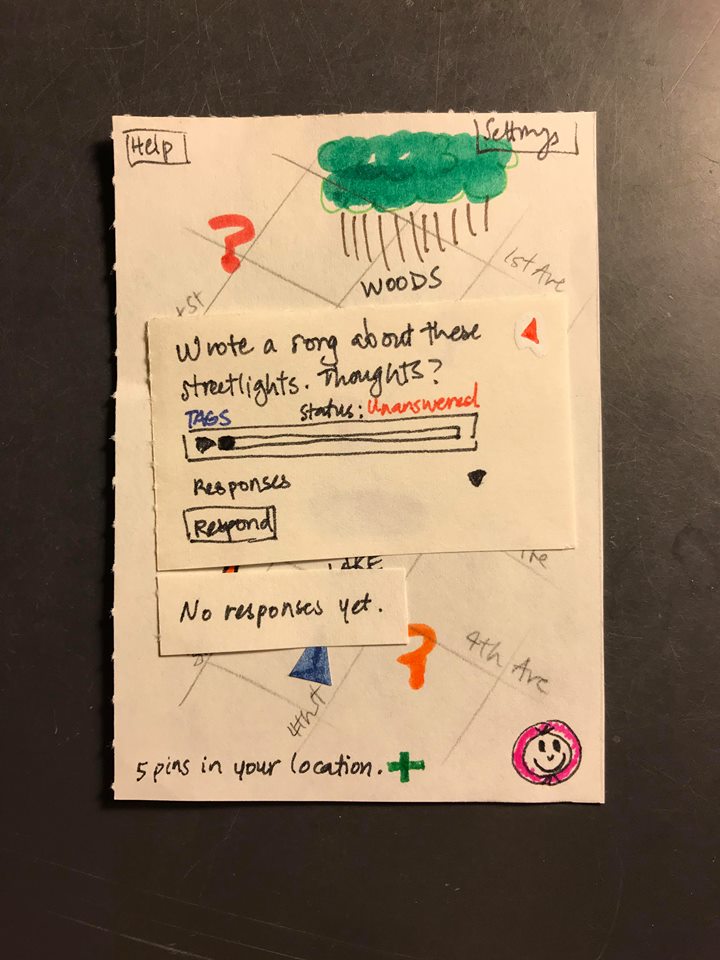 Help
Settings
1st Ave
WOODS
Wrote a song about these
streetlights. Thoughts?
TAGS status: Unanswered
Responses
Respond
LAKE
No responses yet.
4th Ave
4th St
5 pins in your location.